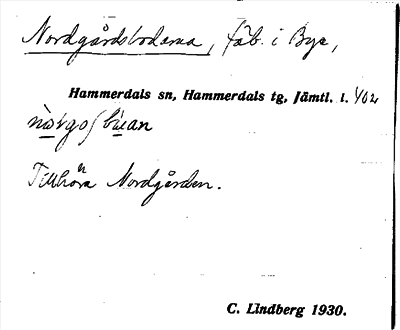 Nordgårdsbodarna, fäb. i Bye,
Hammerdals sn, Hammerdals tg, Jämtl. l. 402
Tillhöra Nordgården.
C. Lindberg 1930.